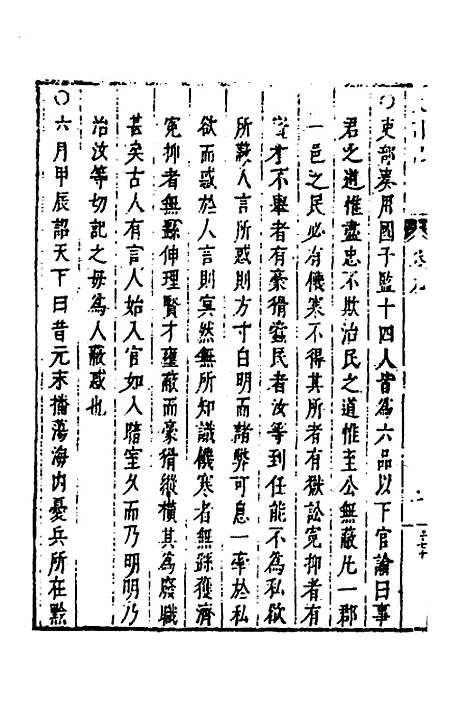 ○吏部奏用國子監十四人皆爲六品以下官諭曰事
君之道惟盡忠不欺治民之道惟主公無蔽凡一郡
一邑之民必有饑寒不得其所者有獄訟冤抑者有
賢才不舉者有豪猾蠹民者汝等到任能不爲私欲
所蔽人言所惑則方寸自明而諸弊可息一牽於私
欲而惑於人言則冥然無所知識饑寒者無繇獲濟
冤抑者無繇伸理賢才壅蔽而豪猾縱橫其爲廢職
甚矣古人有言人始入官如入暗室久而乃明明乃
治汝等切記之毋爲人蔽惑也
○六月甲辰詔天下曰昔元末播蕩海内憂兵所在黔